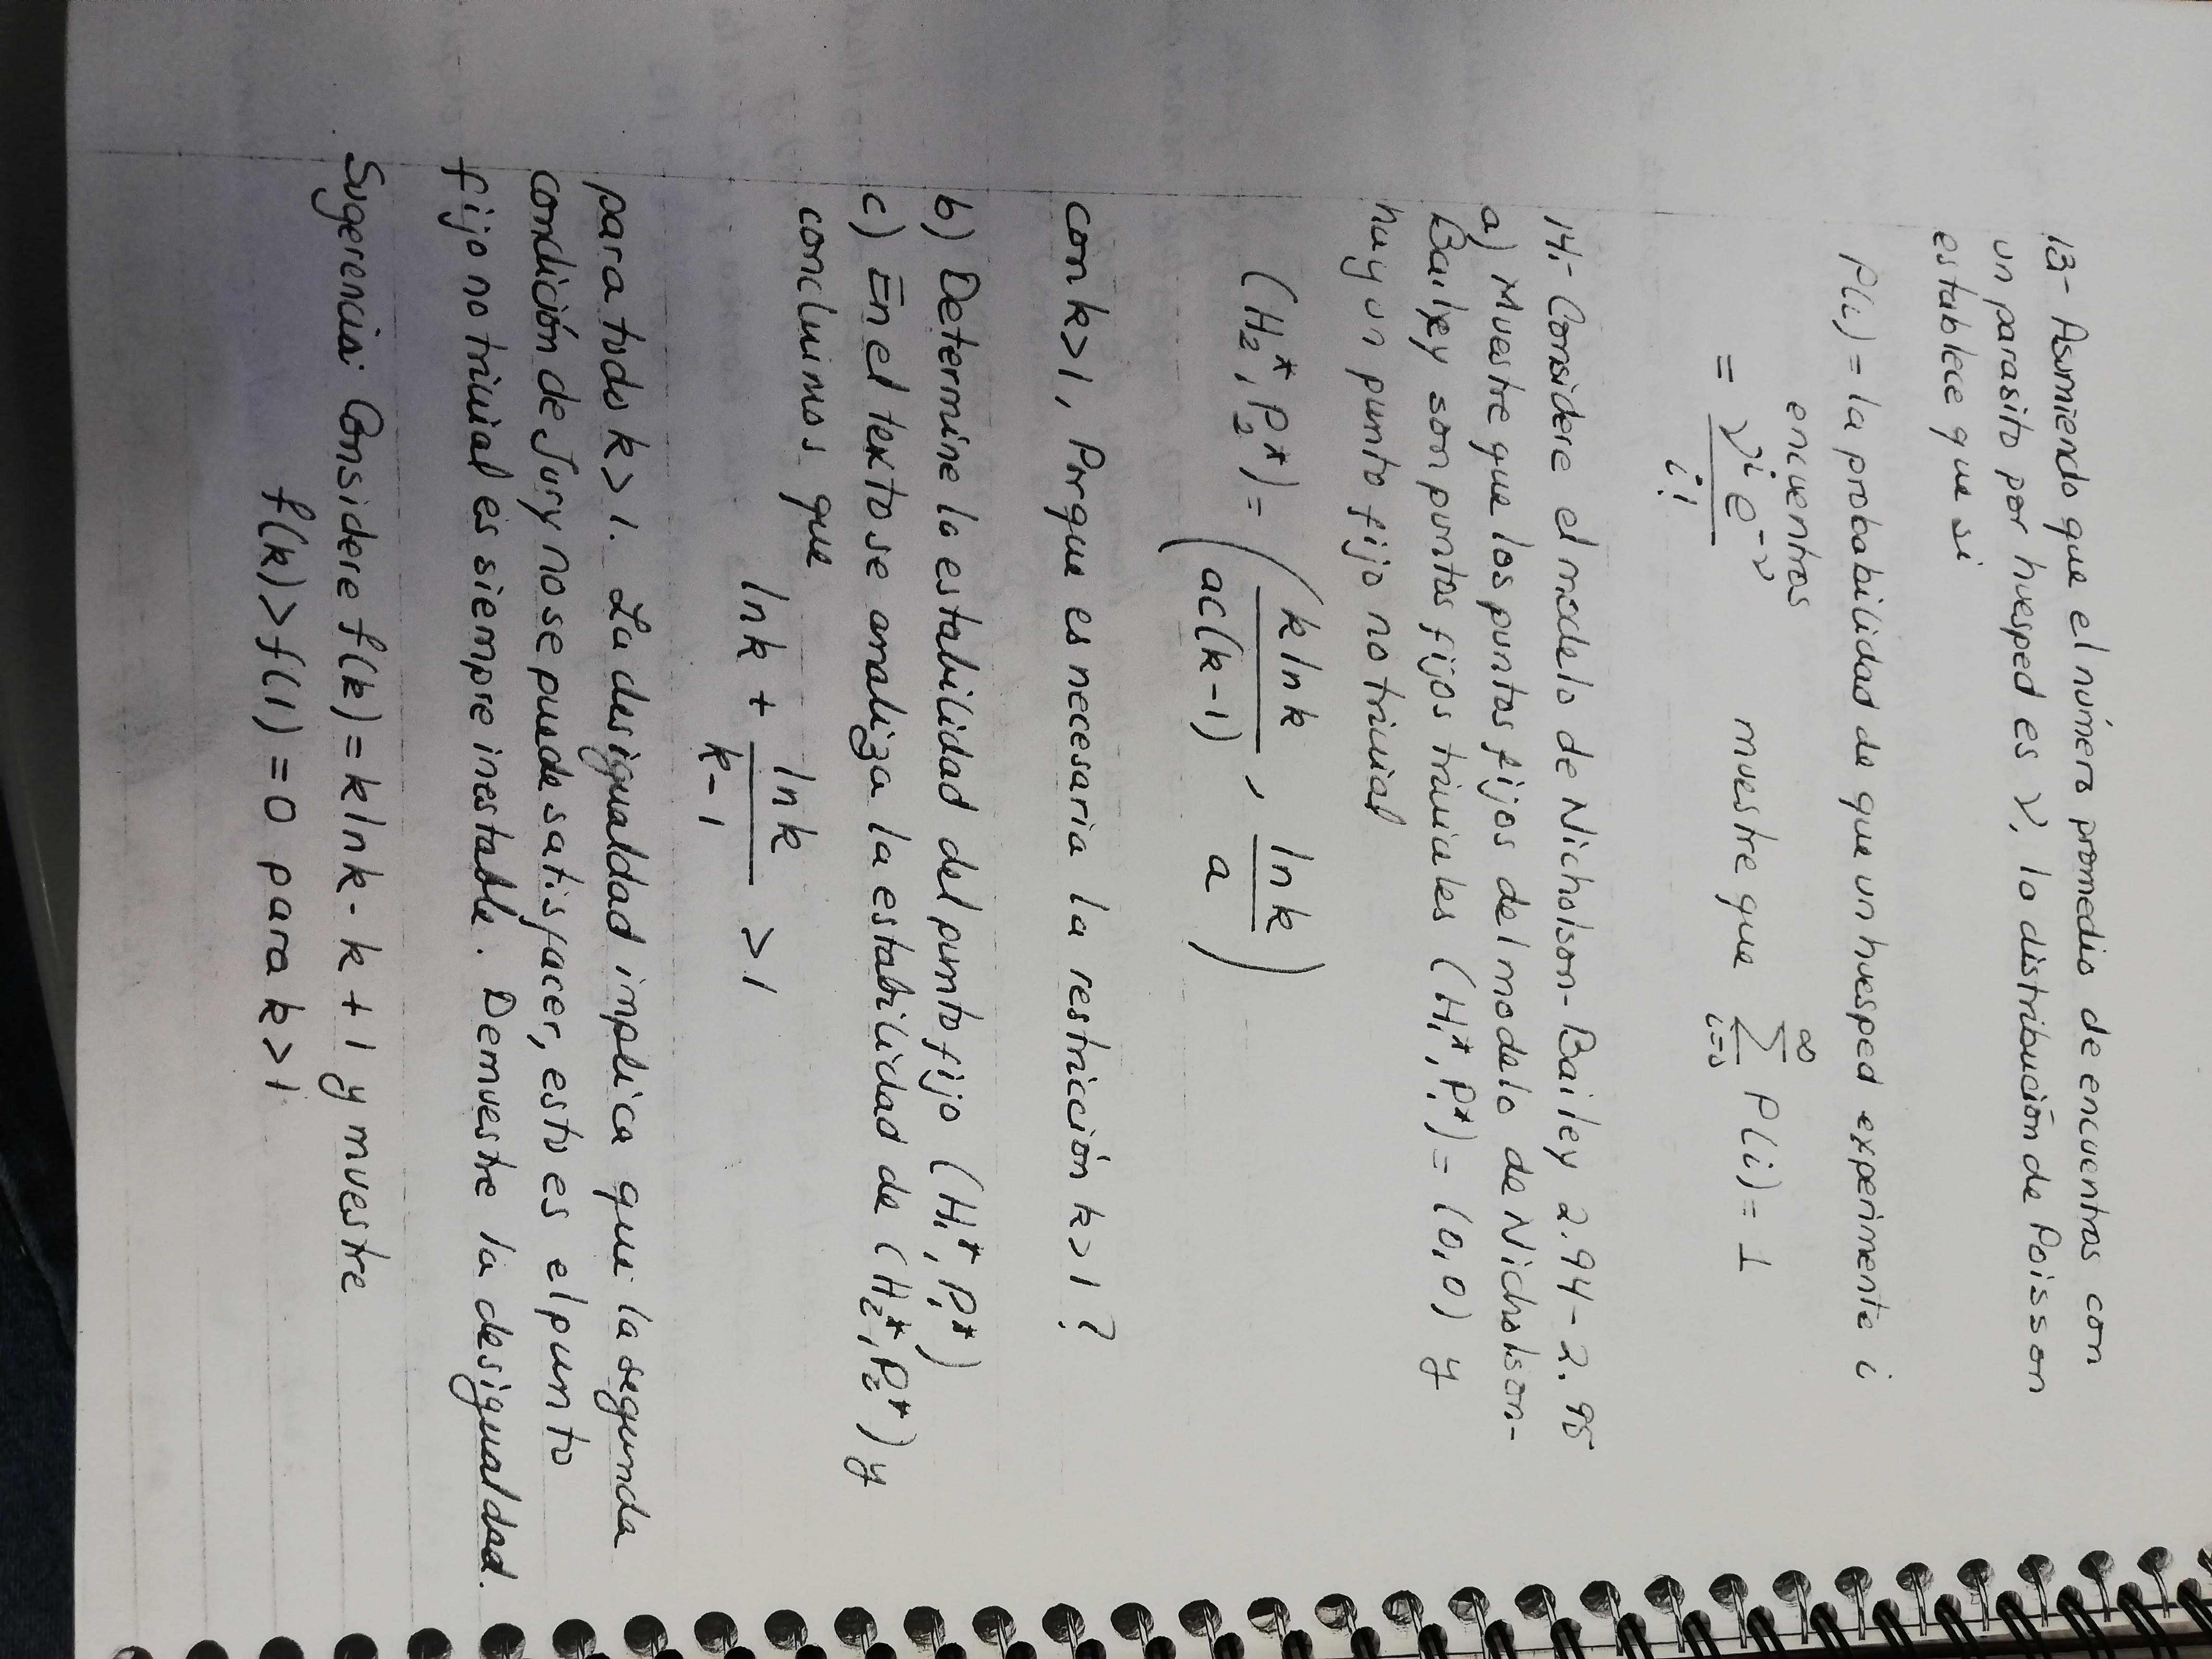 13- Asumiendo que el número promedio de encuentros con
un parasito por huesped es ν, la distribución de Poisson
establece que si
P(i) = la probabilidad de que un huesped experimente i
encuentros
= ν^i e^-ν / i! muestre que ∞ Σ i=0 P(i) = 1
14.- Considere el modelo de Nicholson-Bailey 2.94-2.95
a) Muestre que los puntos fijos del modelo de Nicholson-
Bailey son puntos fijos triviales (H₁*, P₁*) = (0,0) y
hay un punto fijo no trivial
(H₂*, P₂*) = ( k ln k / ac(k-1) , ln k / a )
con k>1, Porque es necesaria la restricción k>1?
b) Determine la estabilidad del punto fijo (H₁*, P₁*)
c) En el texto se analiza la estabilidad de (H₂*, P₂*) y
concluimos que
ln k + ln k / k-1 > 1
para todo k>1. La desigualdad implica que la segunda
condición de Jury no se puede satisfacer, esto es el punto
fijo no trivial es siempre inestable. Demuestre la desigualdad.
Sugerencia: Considere f(k) = k ln k - k + 1 y muestre
f(k) > f(1) = 0 para k>1